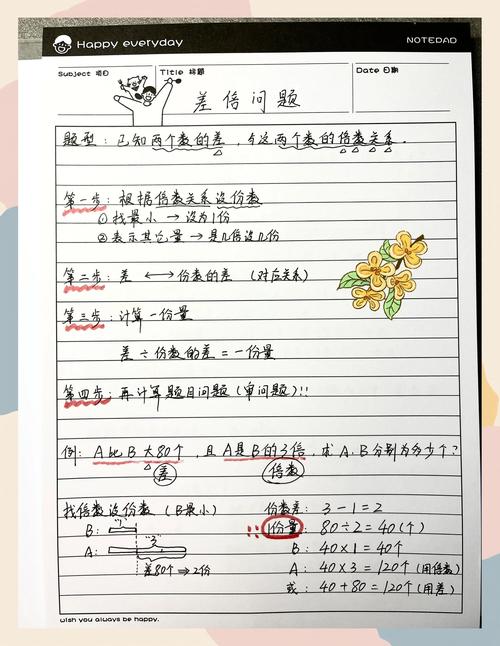 Happy everyday
NOTEPAD
Subject 项目
Title 标题
Date 日期
差倍问题
题型：已知两个数的差，与这两个数的倍数关系.
第一步：根据倍数关系设份数
①找最小 → 设为1份
②表示其它量 → 是几倍设几份
第二步：差 ←→ 份数的差 (对应关系)
第三步：计算一份量
差 ÷ 份数的差 = 一份量
第四步：再计算题目问题 (审问题)!!
例：A比B大80个，且A是B的3倍，求A.B分别为多少个？
差 倍数
找倍数设份数 (B最小)
B：
"1"
A：
"3"
差80个 ⇒ 2份
份数差：3-1=2
!! 1份量：80÷2=40(个)
B：40×1=40个
A：40×3=120个(用倍数)
或：40+80=120个(用差)
wish you always be happy.